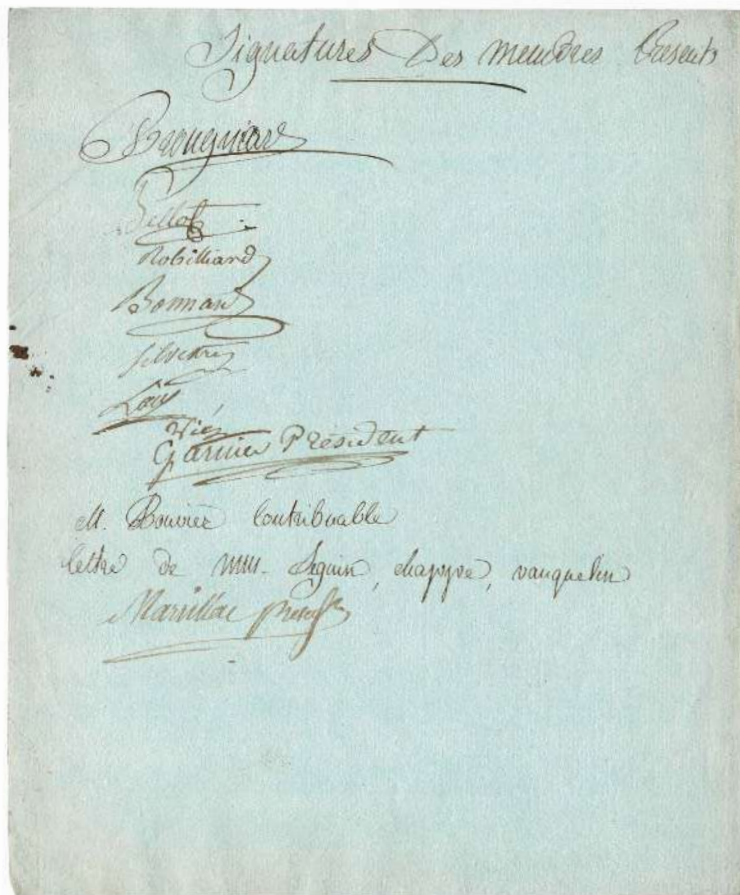 Signatures Des membres Presents
Brongniart
Robilliard
Bonnard
Silvestre
Vien
Garnier Président
M. Bouvier Contribuable
lettre de MM. Seguin, chappe, vauquelin
Marillac